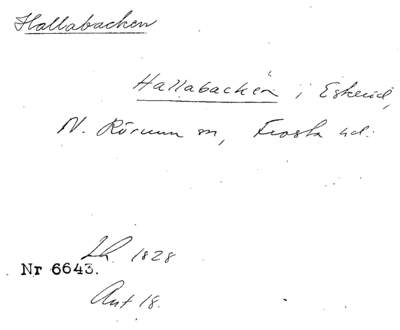 Hallabacken
Hallabacken i Eskerid,
N. Rörum sn, Frosta hd.
Lh. 1828
Nr 6643.
Ant 18.